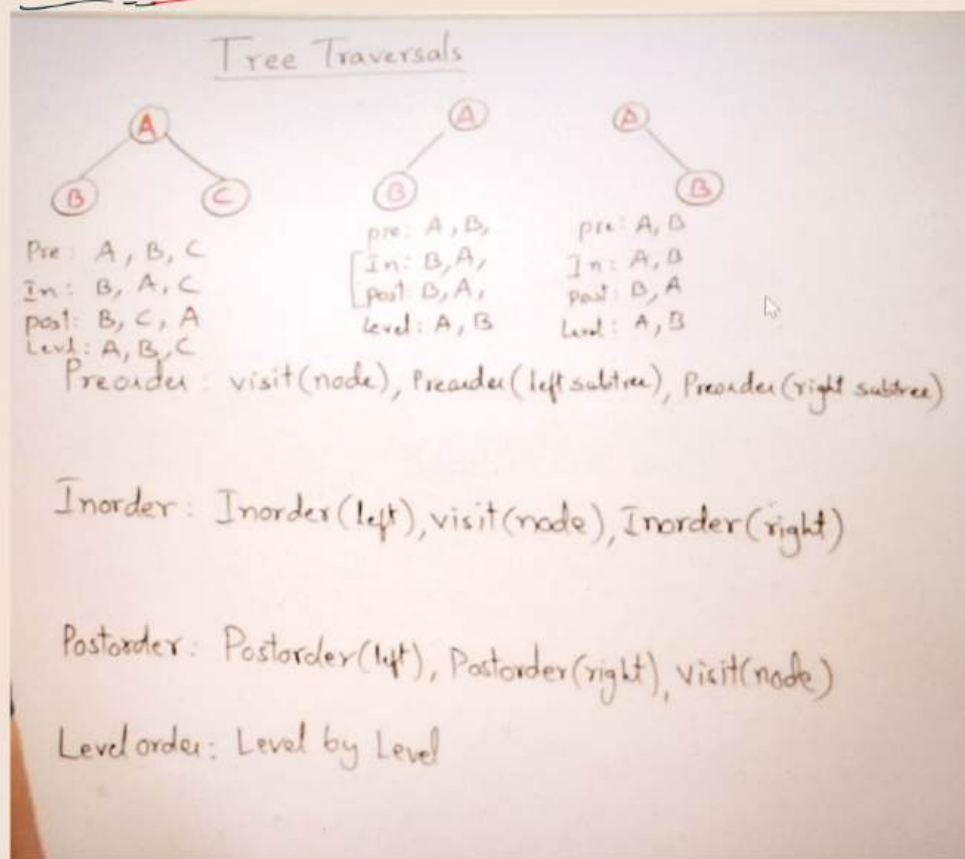 Tree Traversals
A
B
C
Pre: A, B, C
In: B, A, C
post: B, C, A
Level: A, B, C
A
B
pre: A, B,
In: B, A,
post: B, A,
Level: A, B
A
B
pre: A, B
In: A, B
post: B, A
Level: A, B
Preorder: visit(node), Preorder(left subtree), Preorder(right subtree)
Inorder: Inorder(left), visit(node), Inorder(right)
Postorder: Postorder(left), Postorder(right), visit(node)
Level order: Level by Level